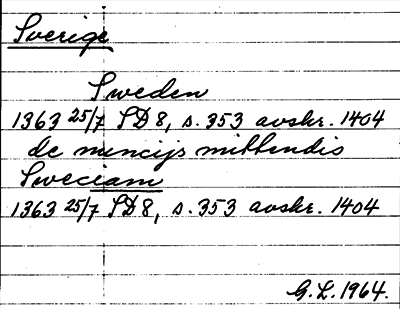 Sverige
Sweden
1363 25/7 SD 8, s. 353 avskr. 1404
de nuncijs mittendis
Sweciam
1363 25/7 SD 8, s. 353 avskr. 1404
G. L. 1964.